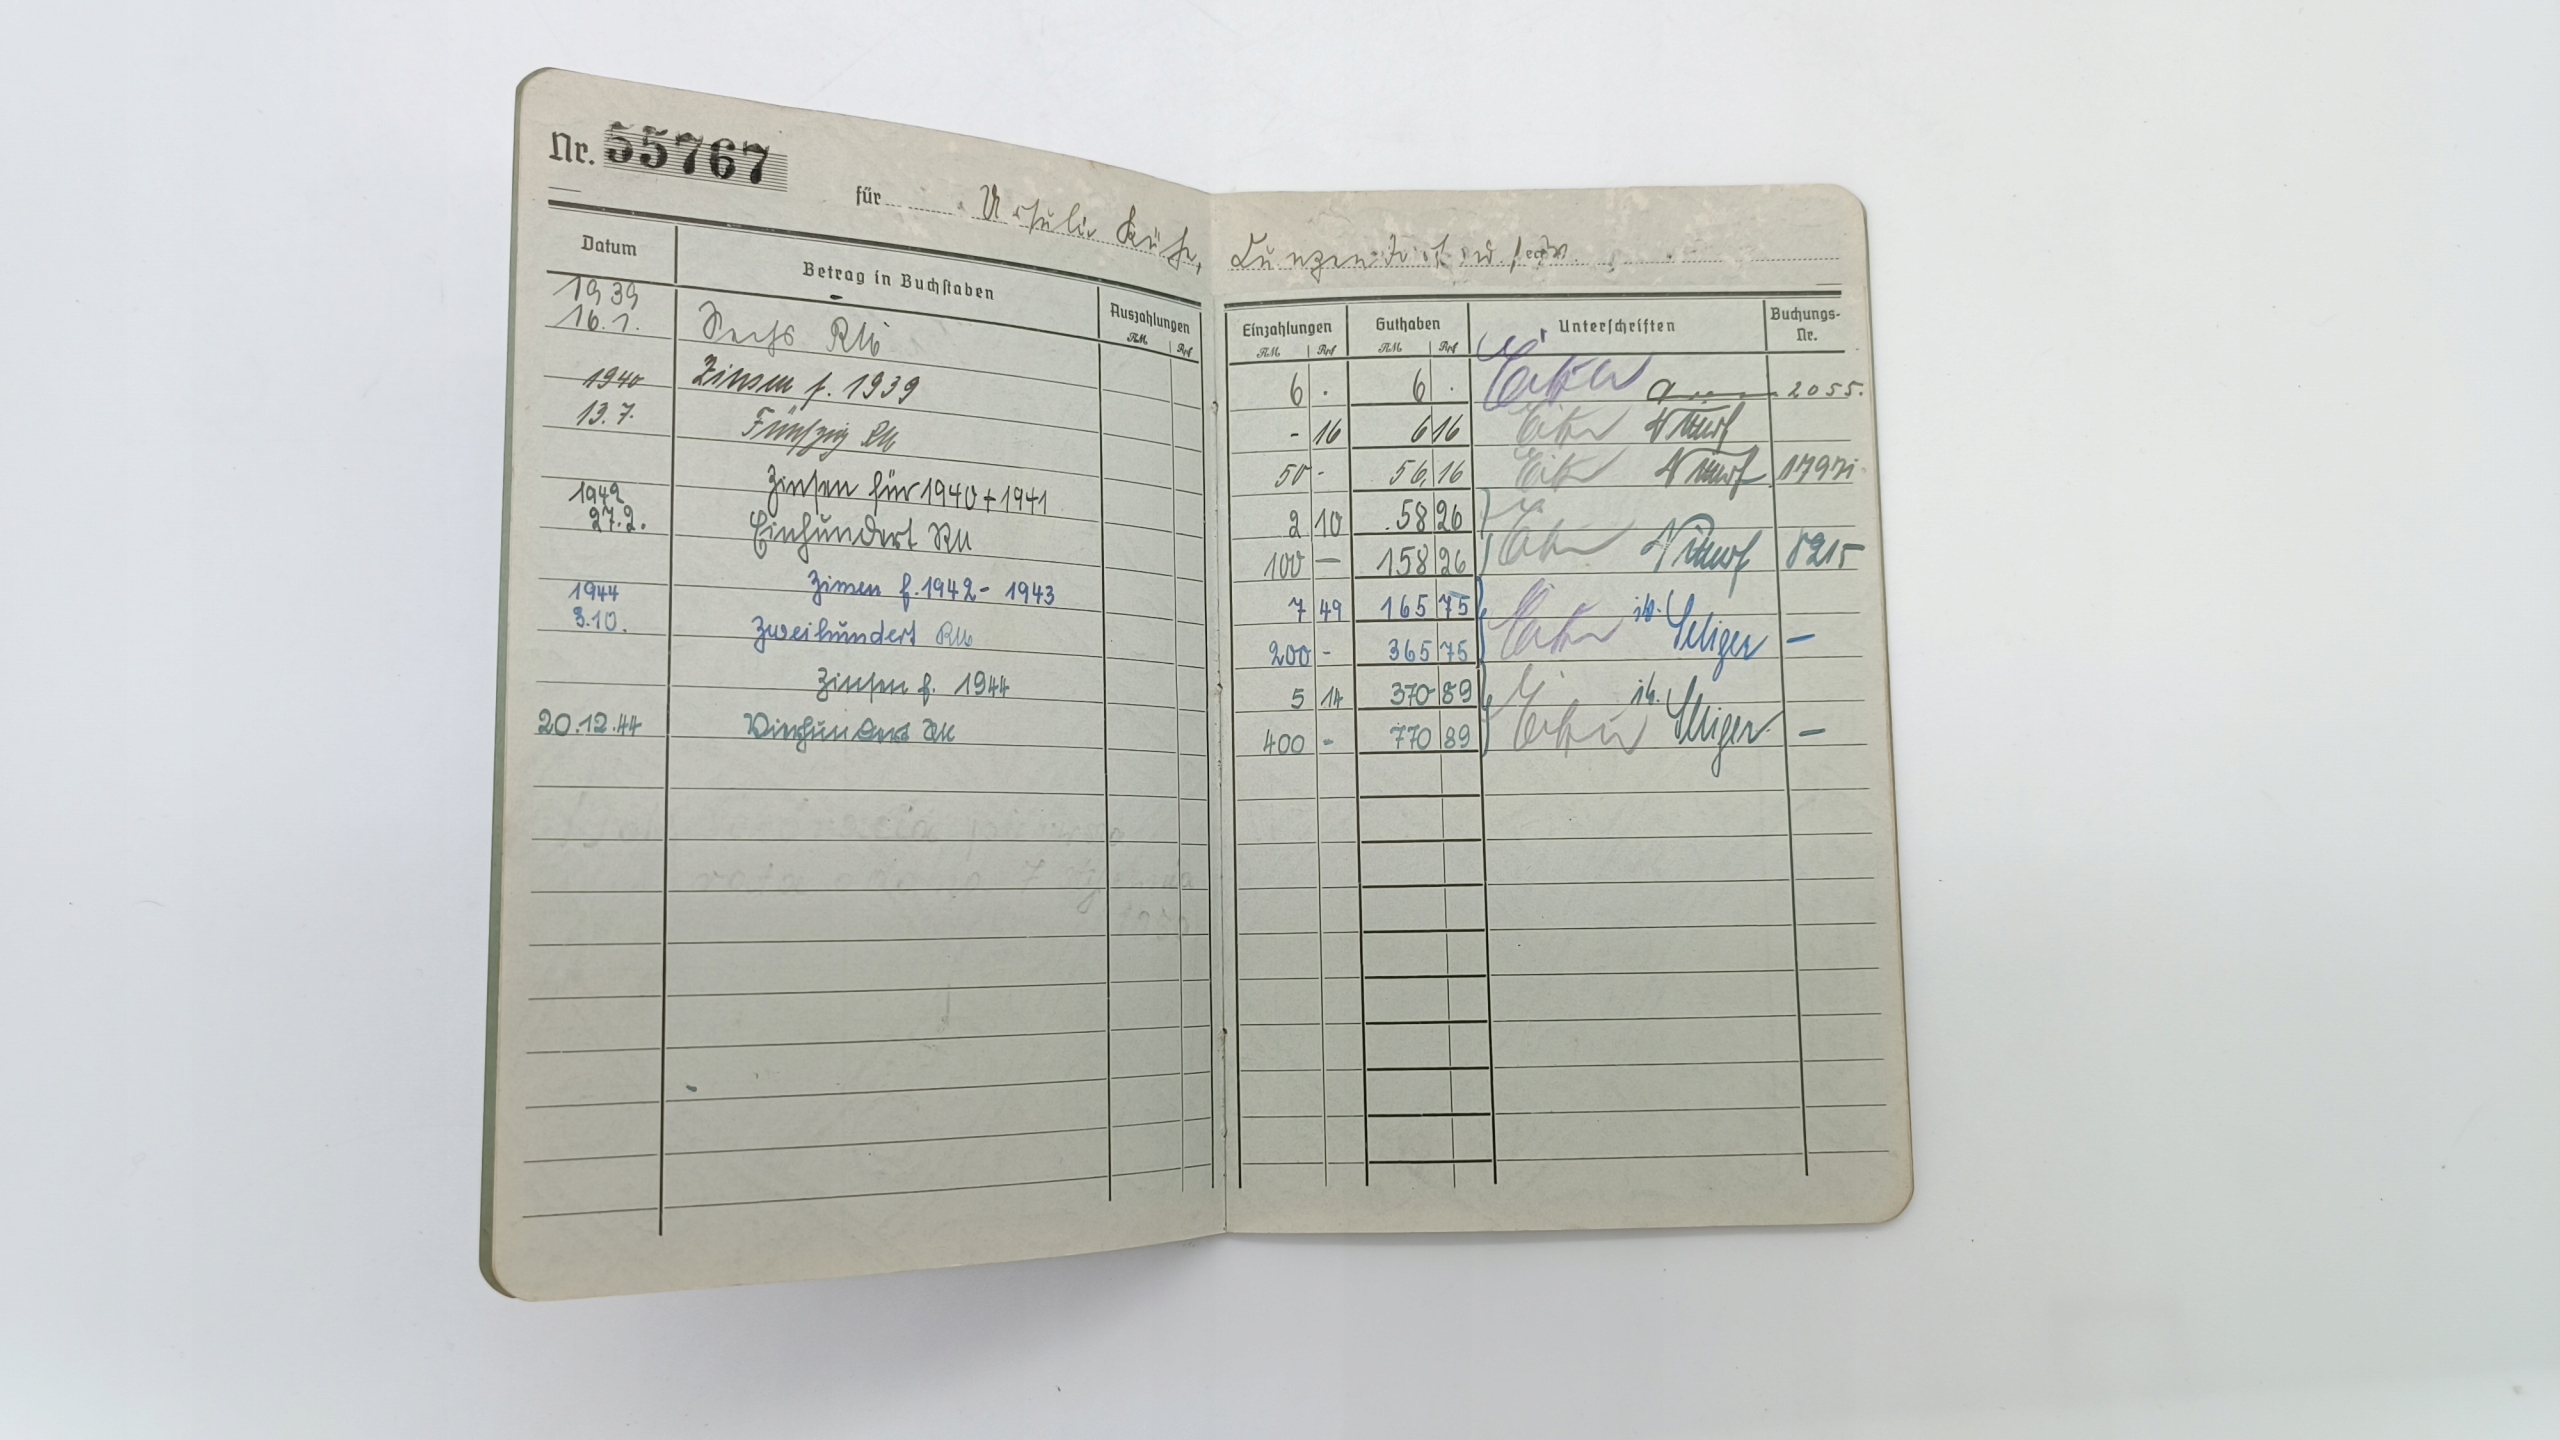 Nr. 55767
für Ursula
Datum Betrag in Buchstaben Auszahlungen Einzahlungen Guthaben Unterschriften Buchungs-Nr.
RM Rpf RM Rpf RM Rpf
1939
16.1. Sechs RM 6 . 6 . 2055.
1940 Zinsen f. 1939 - 16 6 16
13.7. Fünfzig RM 50 - 56,16
Zinsen für 1940 + 1941 2 10 58 26
1942
27.2. Einhundert RM 100 — 158 26 8215
Zinsen f. 1942 - 1943 7 49 165 75
1944
3.10. Zweihundert RM 200 - 365 75 Seliger —
Zinsen f. 1944 5 14 370 89
20.12.44 Vierhundert RM 400 - 770 89 Seliger —